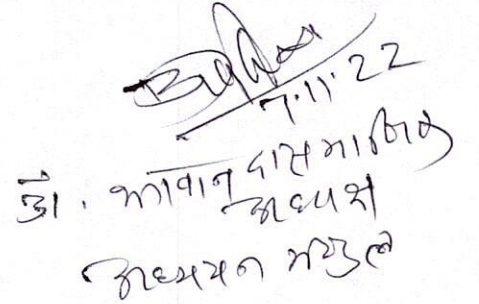 7.11.22
डॉ. भगवानदास मानिक
अध्यक्ष
अध्ययन मण्डल